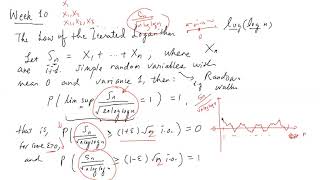 Week 10
X
X₁, X₂, X₃
Sₙ/√(n log log n)
log(log n)
The Law of the Iterated Logarithm
Let Sₙ = X₁ + ... + Xₙ, where Xₙ
are i.i.d. simple random variables with
mean 0 and variance 1, then: → Random walk
P( lim sup Sₙ/√(2n log log n) = 1 ) = 1,
that is, P( Sₙ/√(n log log n) ≥ (1+ε)√2 i.o. ) = 0
for some ε>0,
and P( Sₙ/√(n log log n) ≥ (1-ε)√2 i.o. ) = 1